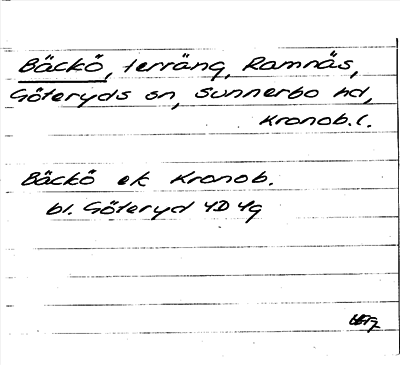 Bäckö, terräng, Ramnäs,
Göteryds sn, Sunnerbo hd,
Kronob.l.
Bäckö ek Kronob.
bl. Göteryd 4D 4g